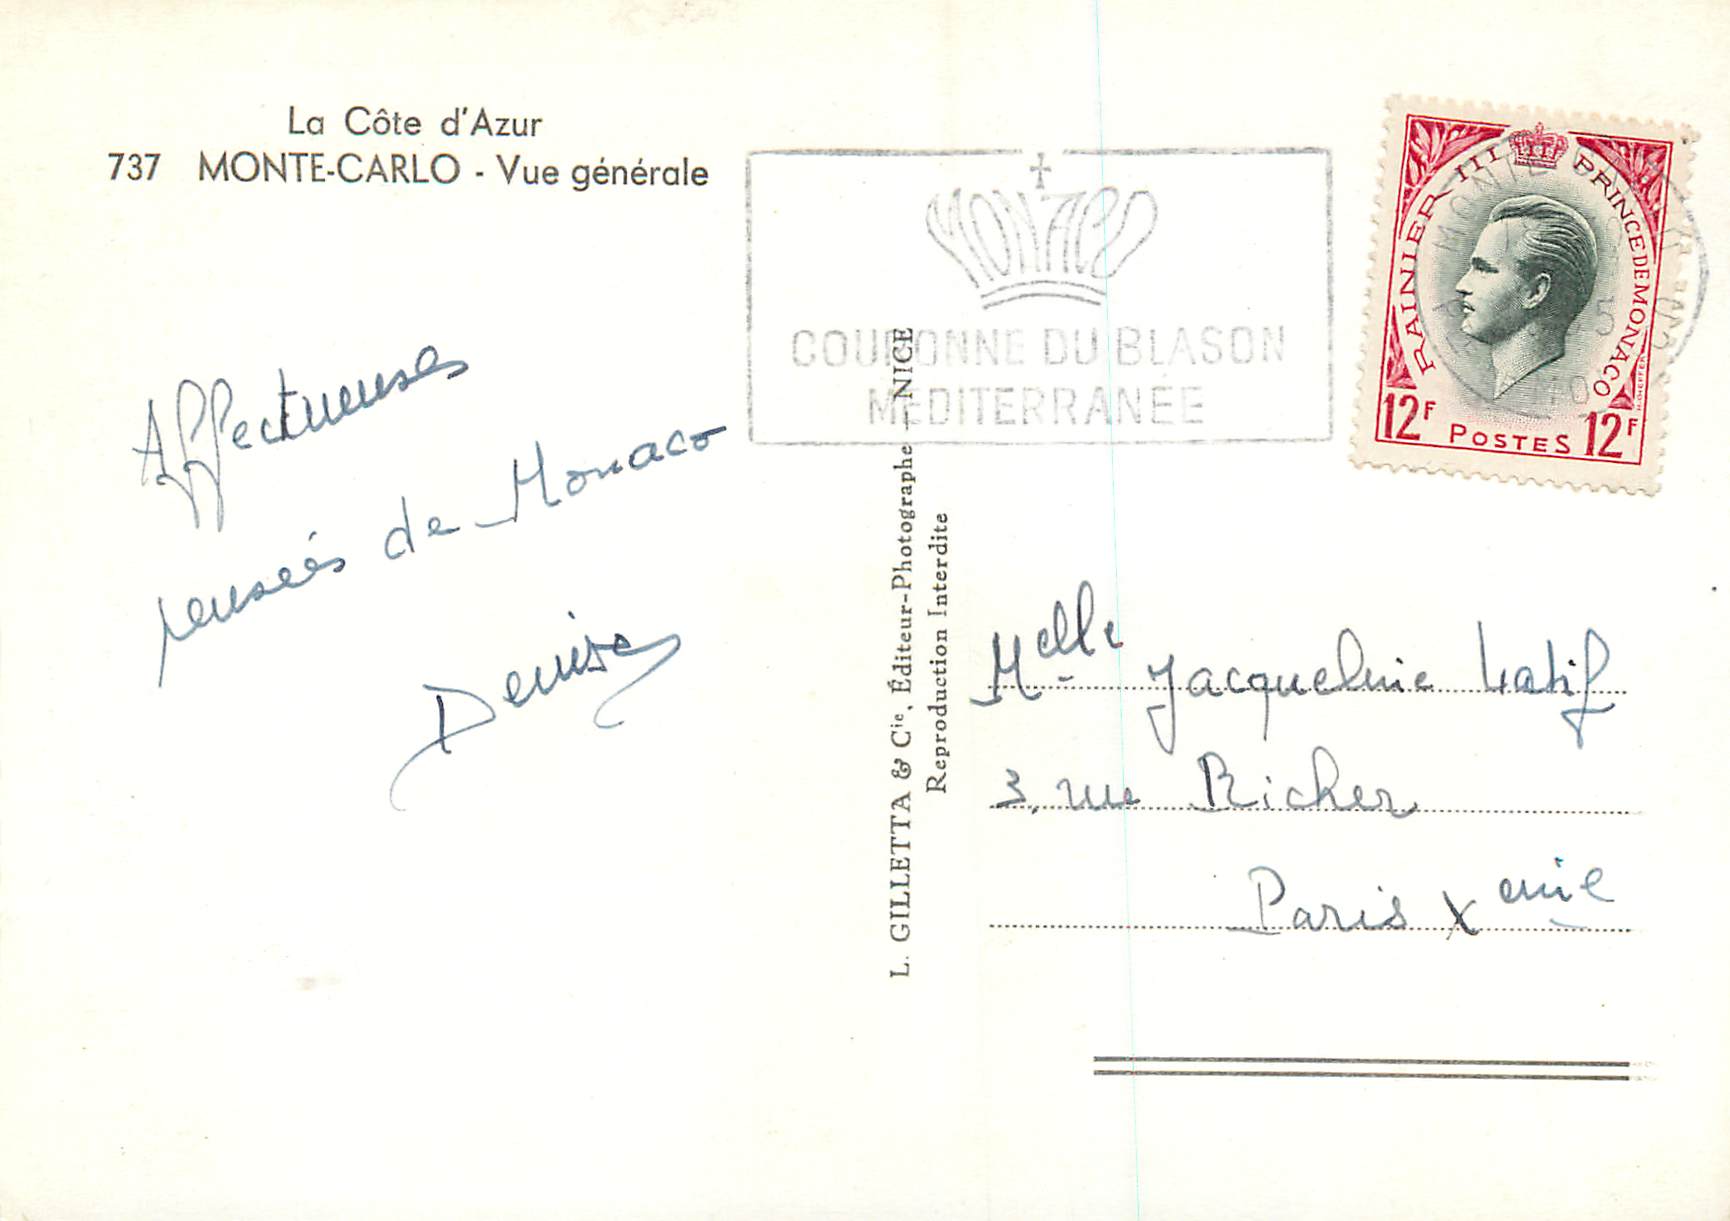 La Côte d'Azur
737 MONTE-CARLO - Vue générale
Affectueuses
pensées de Monaco
Denise
L. GILLETTA & Cie, Éditeur-Photographe - NICE
Reproduction Interdite
MONACO
COURONNE DU BLASON
MÉDITERRANÉE
RAINIER III PRINCE DE MONACO
12F POSTES 12F
Melle Jacqueline Latif
3, rue Richer
Paris Xemie